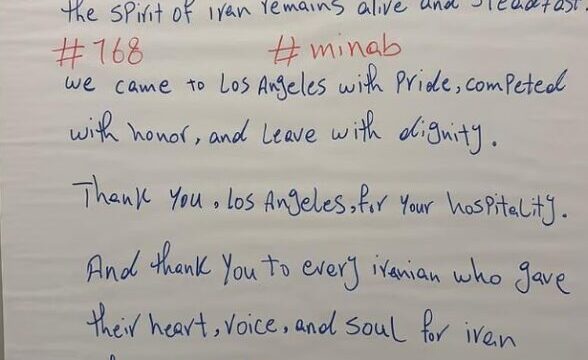 the spirit of iran remains alive and steadfast.
#168 #minab
we came to Los Angeles with Pride, competed
with honor, and Leave with dignity.
Thank you, Los Angeles, for your hospitality.
And thank you to every iranian who gave
their heart, voice, and soul for iran